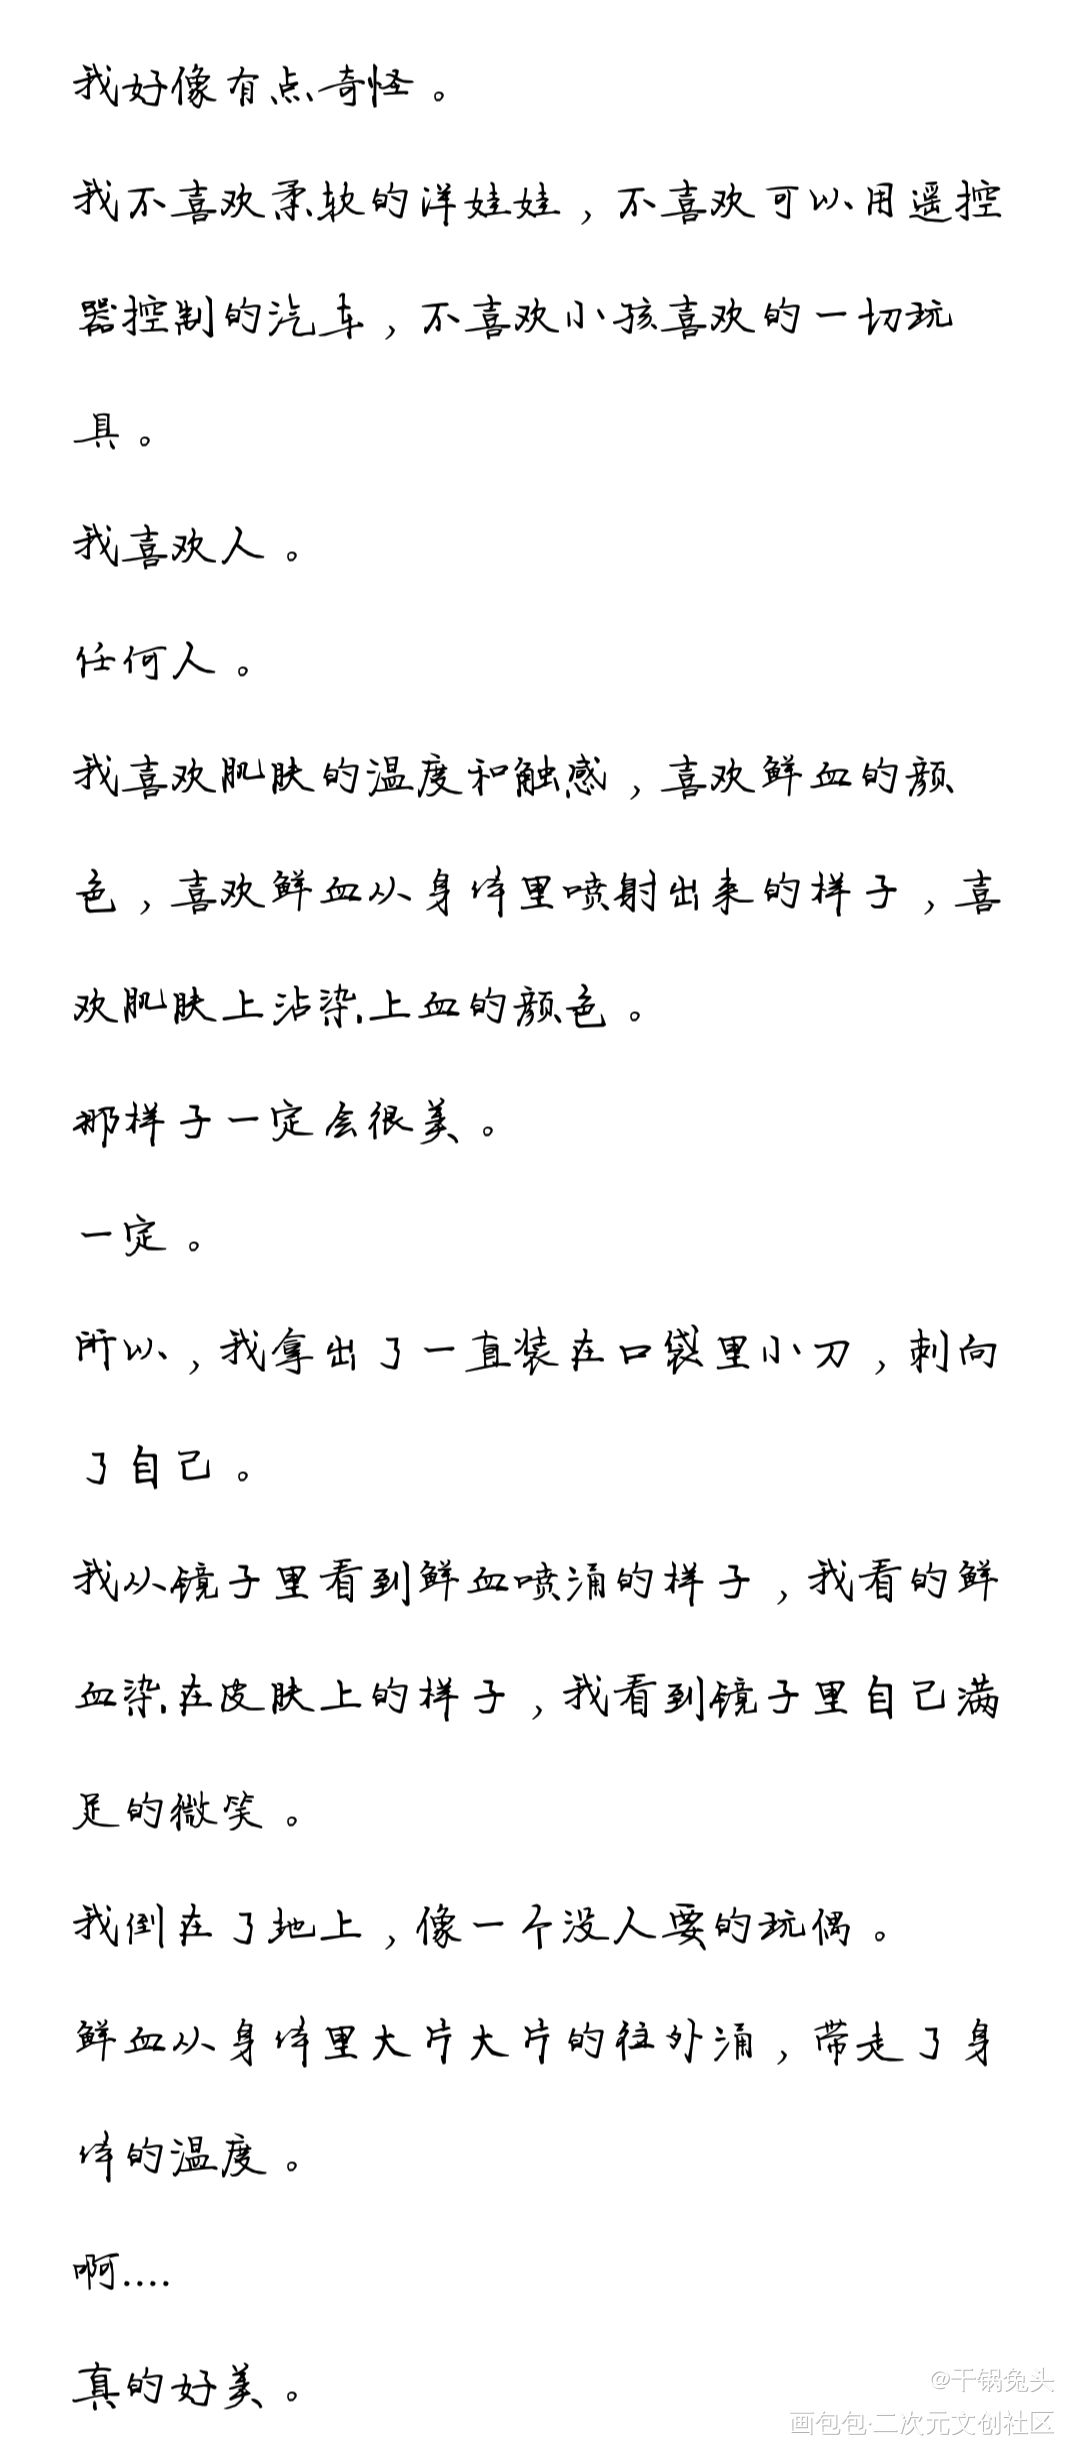 我好像有点奇怪。
我不喜欢柔软的洋娃娃，不喜欢可以用遥控
器控制的汽车，不喜欢小孩喜欢的一切玩
具。
我喜欢人。
任何人。
我喜欢肌肤的温度和触感，喜欢鲜血的颜
色，喜欢鲜血从身体里喷射出来的样子，喜
欢肌肤上沾染上血的颜色。
那样子一定会很美。
一定。
所以，我拿出了一直装在口袋里小刀，刺向
了自己。
我从镜子里看到鲜血喷涌的样子，我看的鲜
血染在皮肤上的样子，我看到镜子里自己满
足的微笑。
我倒在了地上，像一个没人要的玩偶。
鲜血从身体里大片大片的往外涌，带走了身
体的温度。
啊....
真的好美。
@干锅兔头
画包包·二次元文创社区